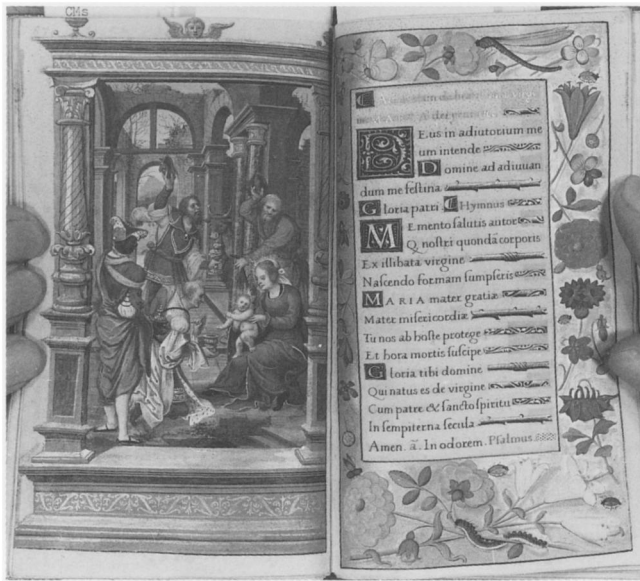 CMs
Eus in adiutorium me
um intende
Domine ad adiuuan
dum me festina
Gloria patri Hymnus
MEmento salutis autor
Q nostri quondā corporis
Ex illibata virgine
Nascendo formam sumpseris
MARIA mater gratiæ
Mater misericordiæ
Tu nos ab hoste protege
Et hora mortis suscipe
Gloria tibi domine
Qui natus es de virgine
Cum patre & sancto spiritu
In sempiterna secula
Amen. ā. In odorem. Psalmus